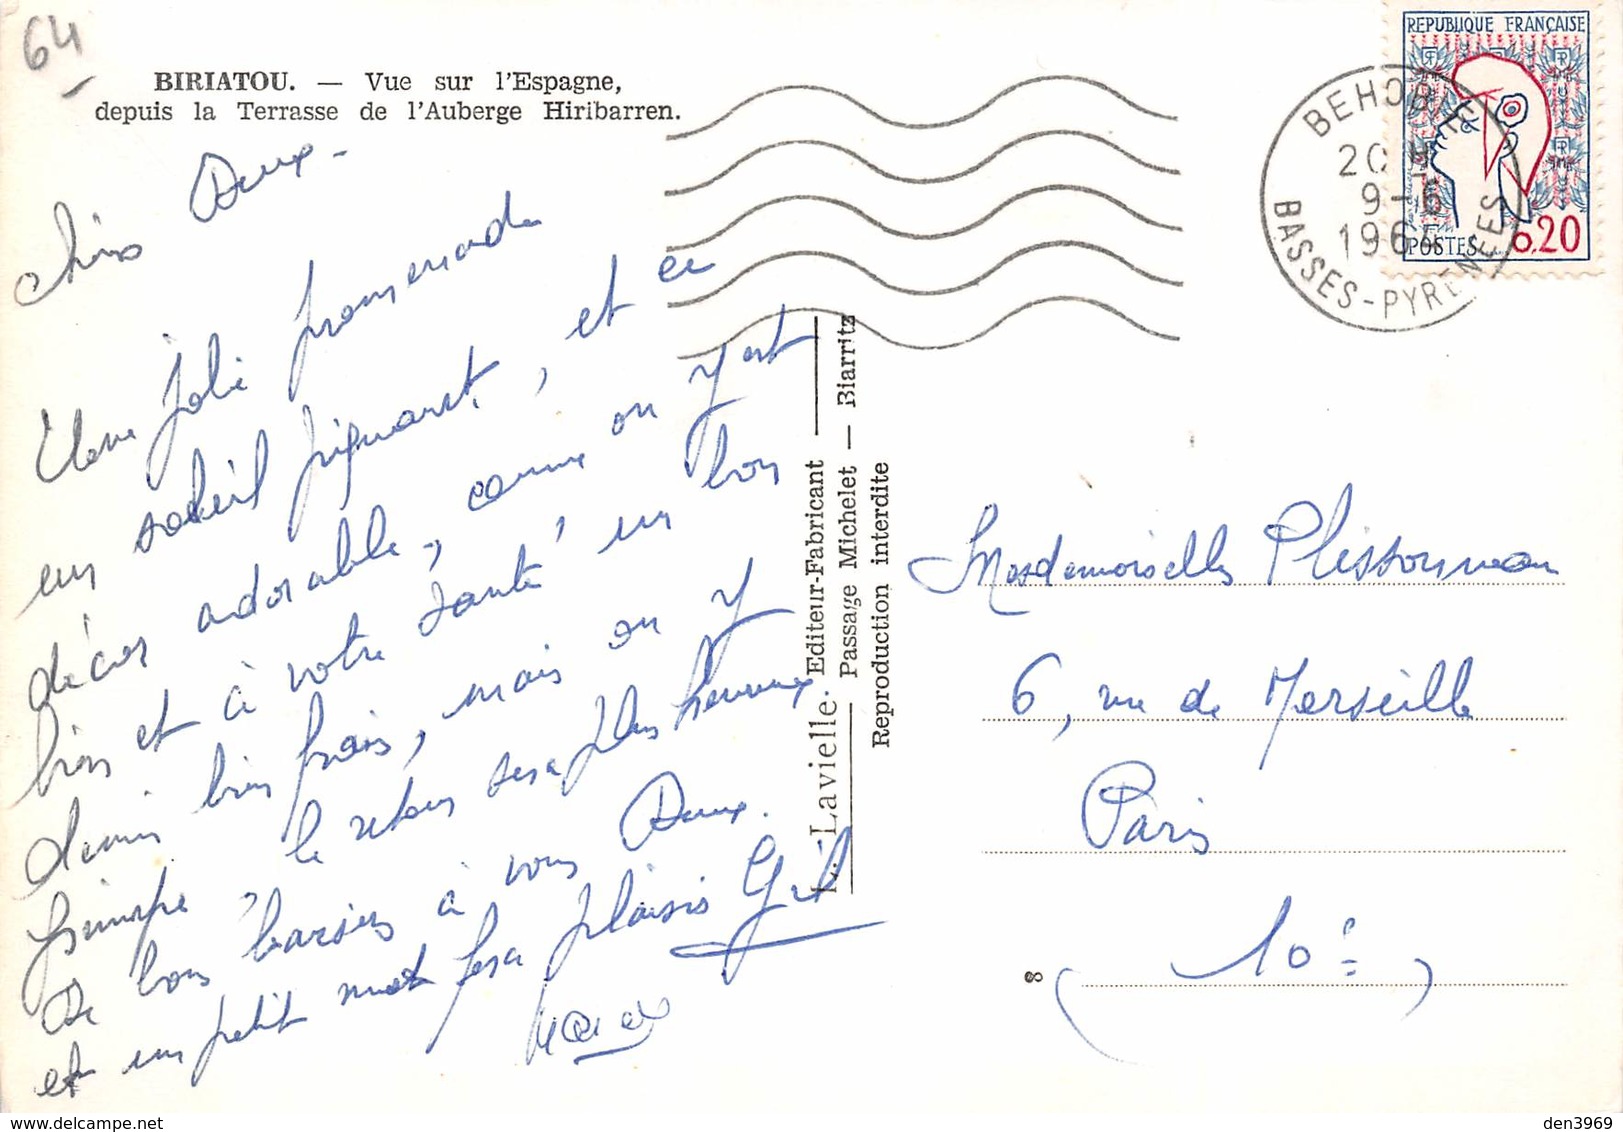 64
BIRIATOU. — Vue sur l'Espagne,
depuis la Terrasse de l'Auberge Hiribarren.
Deux -
Une jolie promenade
un soleil piquant, et ce
décor adorable, comme on y est
bien et à votre santé un bon
demi bien frais, mais on y
grimpe le retour sera plus heureux
De bons baisers à vous Deux.
et un petit mot fera plaisir
L. Lavielle. Editeur-Fabricant
Passage Michelet — Biarritz
Reproduction interdite
REPUBLIQUE FRANÇAISE
POSTES 0,20
BEHOBIE
20 H
9-6
196
BASSES-PYRENEES
Mesdemoiselles Plissonneau
6, rue de Marseille
Paris
(10è)
8
den3969